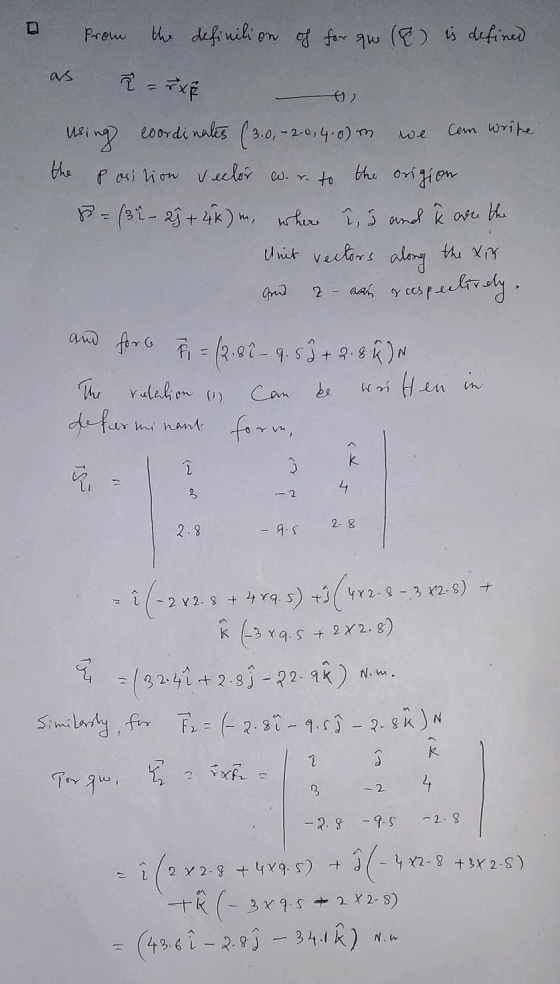 From the definition of for que (τ) is defined
as τ⃗ = r⃗ x F⃗ —(1)
using coordinates (3.0, -2.0, 4.0) m we can write
the position vector w.r. to the origion
r⃗ = (3î - 2ĵ + 4k̂) m, where î, ĵ and k̂ are the
Unit vectors along the x, y
and z - axis respectively.
and force F⃗₁ = (2.8î - 9.5ĵ + 2.8k̂) N
The relation (1) Can be written in
determinant form,
τ⃗₁ = | î ĵ k̂ |
| 3 -2 4 |
| 2.8 -9.5 2.8 |
= î (-2x2.8 + 4x9.5) + ĵ (4x2.8 - 3x2.8) +
k̂ (-3x9.5 + 2x2.8)
τ⃗₁ = (32.4î + 2.8ĵ - 22.9k̂) N.m.
Similarly, for F⃗₂ = (-2.8î - 9.5ĵ - 2.8k̂) N
Torque, τ⃗₂ = r⃗xF⃗₂ = | î ĵ k̂ |
| 3 -2 4 |
| -2.8 -9.5 -2.8 |
= î (2x2.8 + 4x9.5) + ĵ (-4x2.8 + 3x2.8)
+ k̂ (-3x9.5 - 2x2.8)
= (43.6î - 2.8ĵ - 34.1k̂) N.m